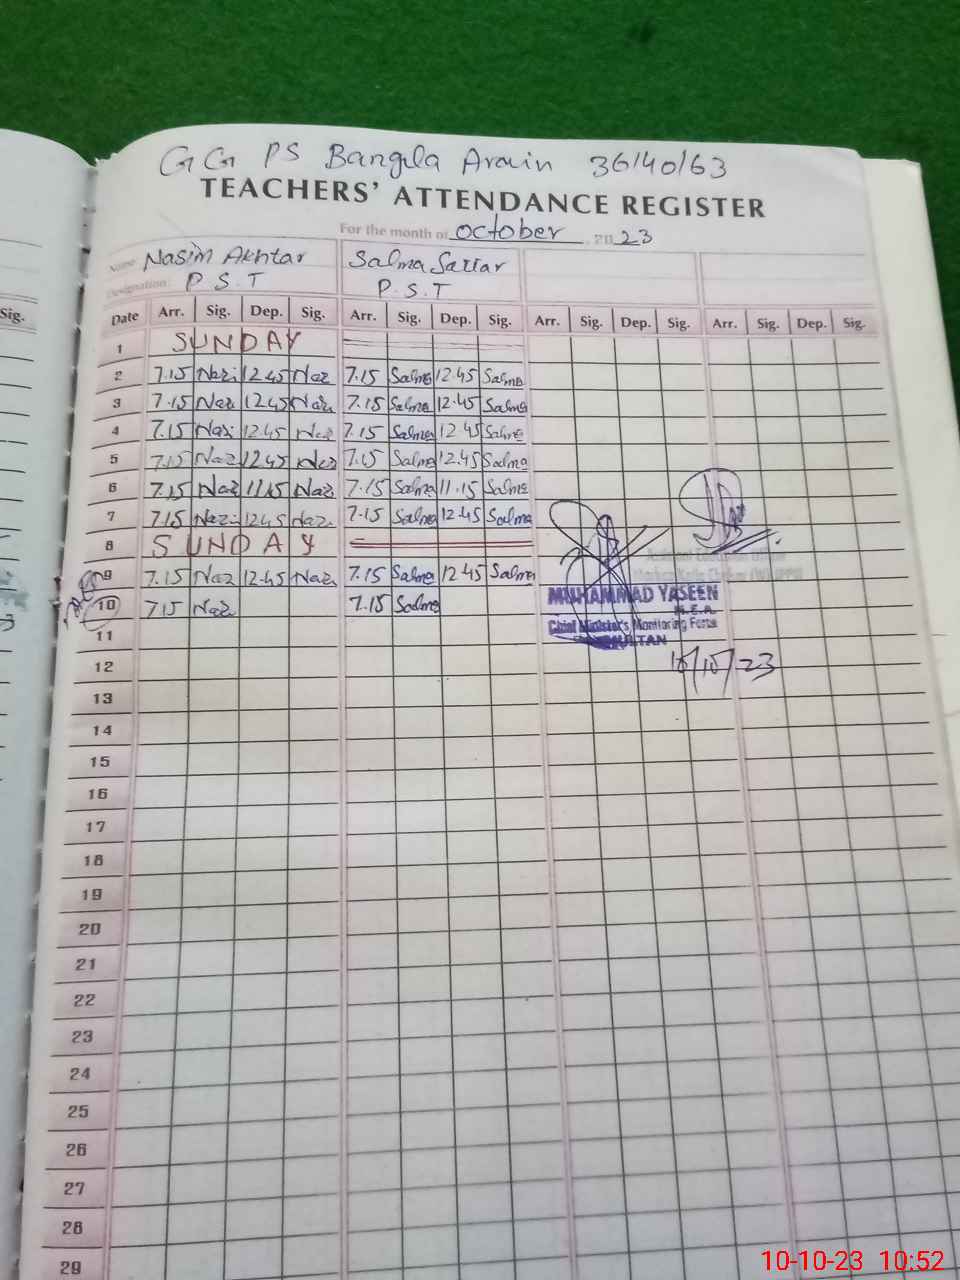 GG PS Bangla Arain 36/40/63
TEACHERS' ATTENDANCE REGISTER
For the month of October, 2023
Name: Nasim Akhtar Salma Sattar
Designation: P.S.T P.S.T
Date Arr. Sig. Dep. Sig. Arr. Sig. Dep. Sig. Arr. Sig. Dep. Sig. Arr. Sig. Dep. Sig.
1 SUNDAY
2 7.15 Nazi 12.45 Naz 7.15 Salma 12.45 Salma
3 7.15 Naz 12.45 Naz 7.15 Salma 12.45 Salma
4 7.15 Nazi 12.45 Naz 7.15 Salma 12.45 Salma
5 7.15 Naz 12.45 Naz 7.15 Salma 12.45 Salma
6 7.15 Naz 11.15 Naz 7.15 Salma 11.15 Salma
7 7.15 Nazi 12.45 Naz 7.15 Salma 12.45 Salma
8 SUNDAY
9 7.15 Naz 12.45 Naz 7.15 Salma 12.45 Salma
10 7.15 Naz 7.15 Salma
MUHAMMAD YASEEN
M.E.A.
Chief Minister's Monitoring Force
MULTAN
10/10/23
11
12
13
14
15
16
17
18
19
20
21
22
23
24
25
26
27
28
29
Sig.
10-10-23 10:52